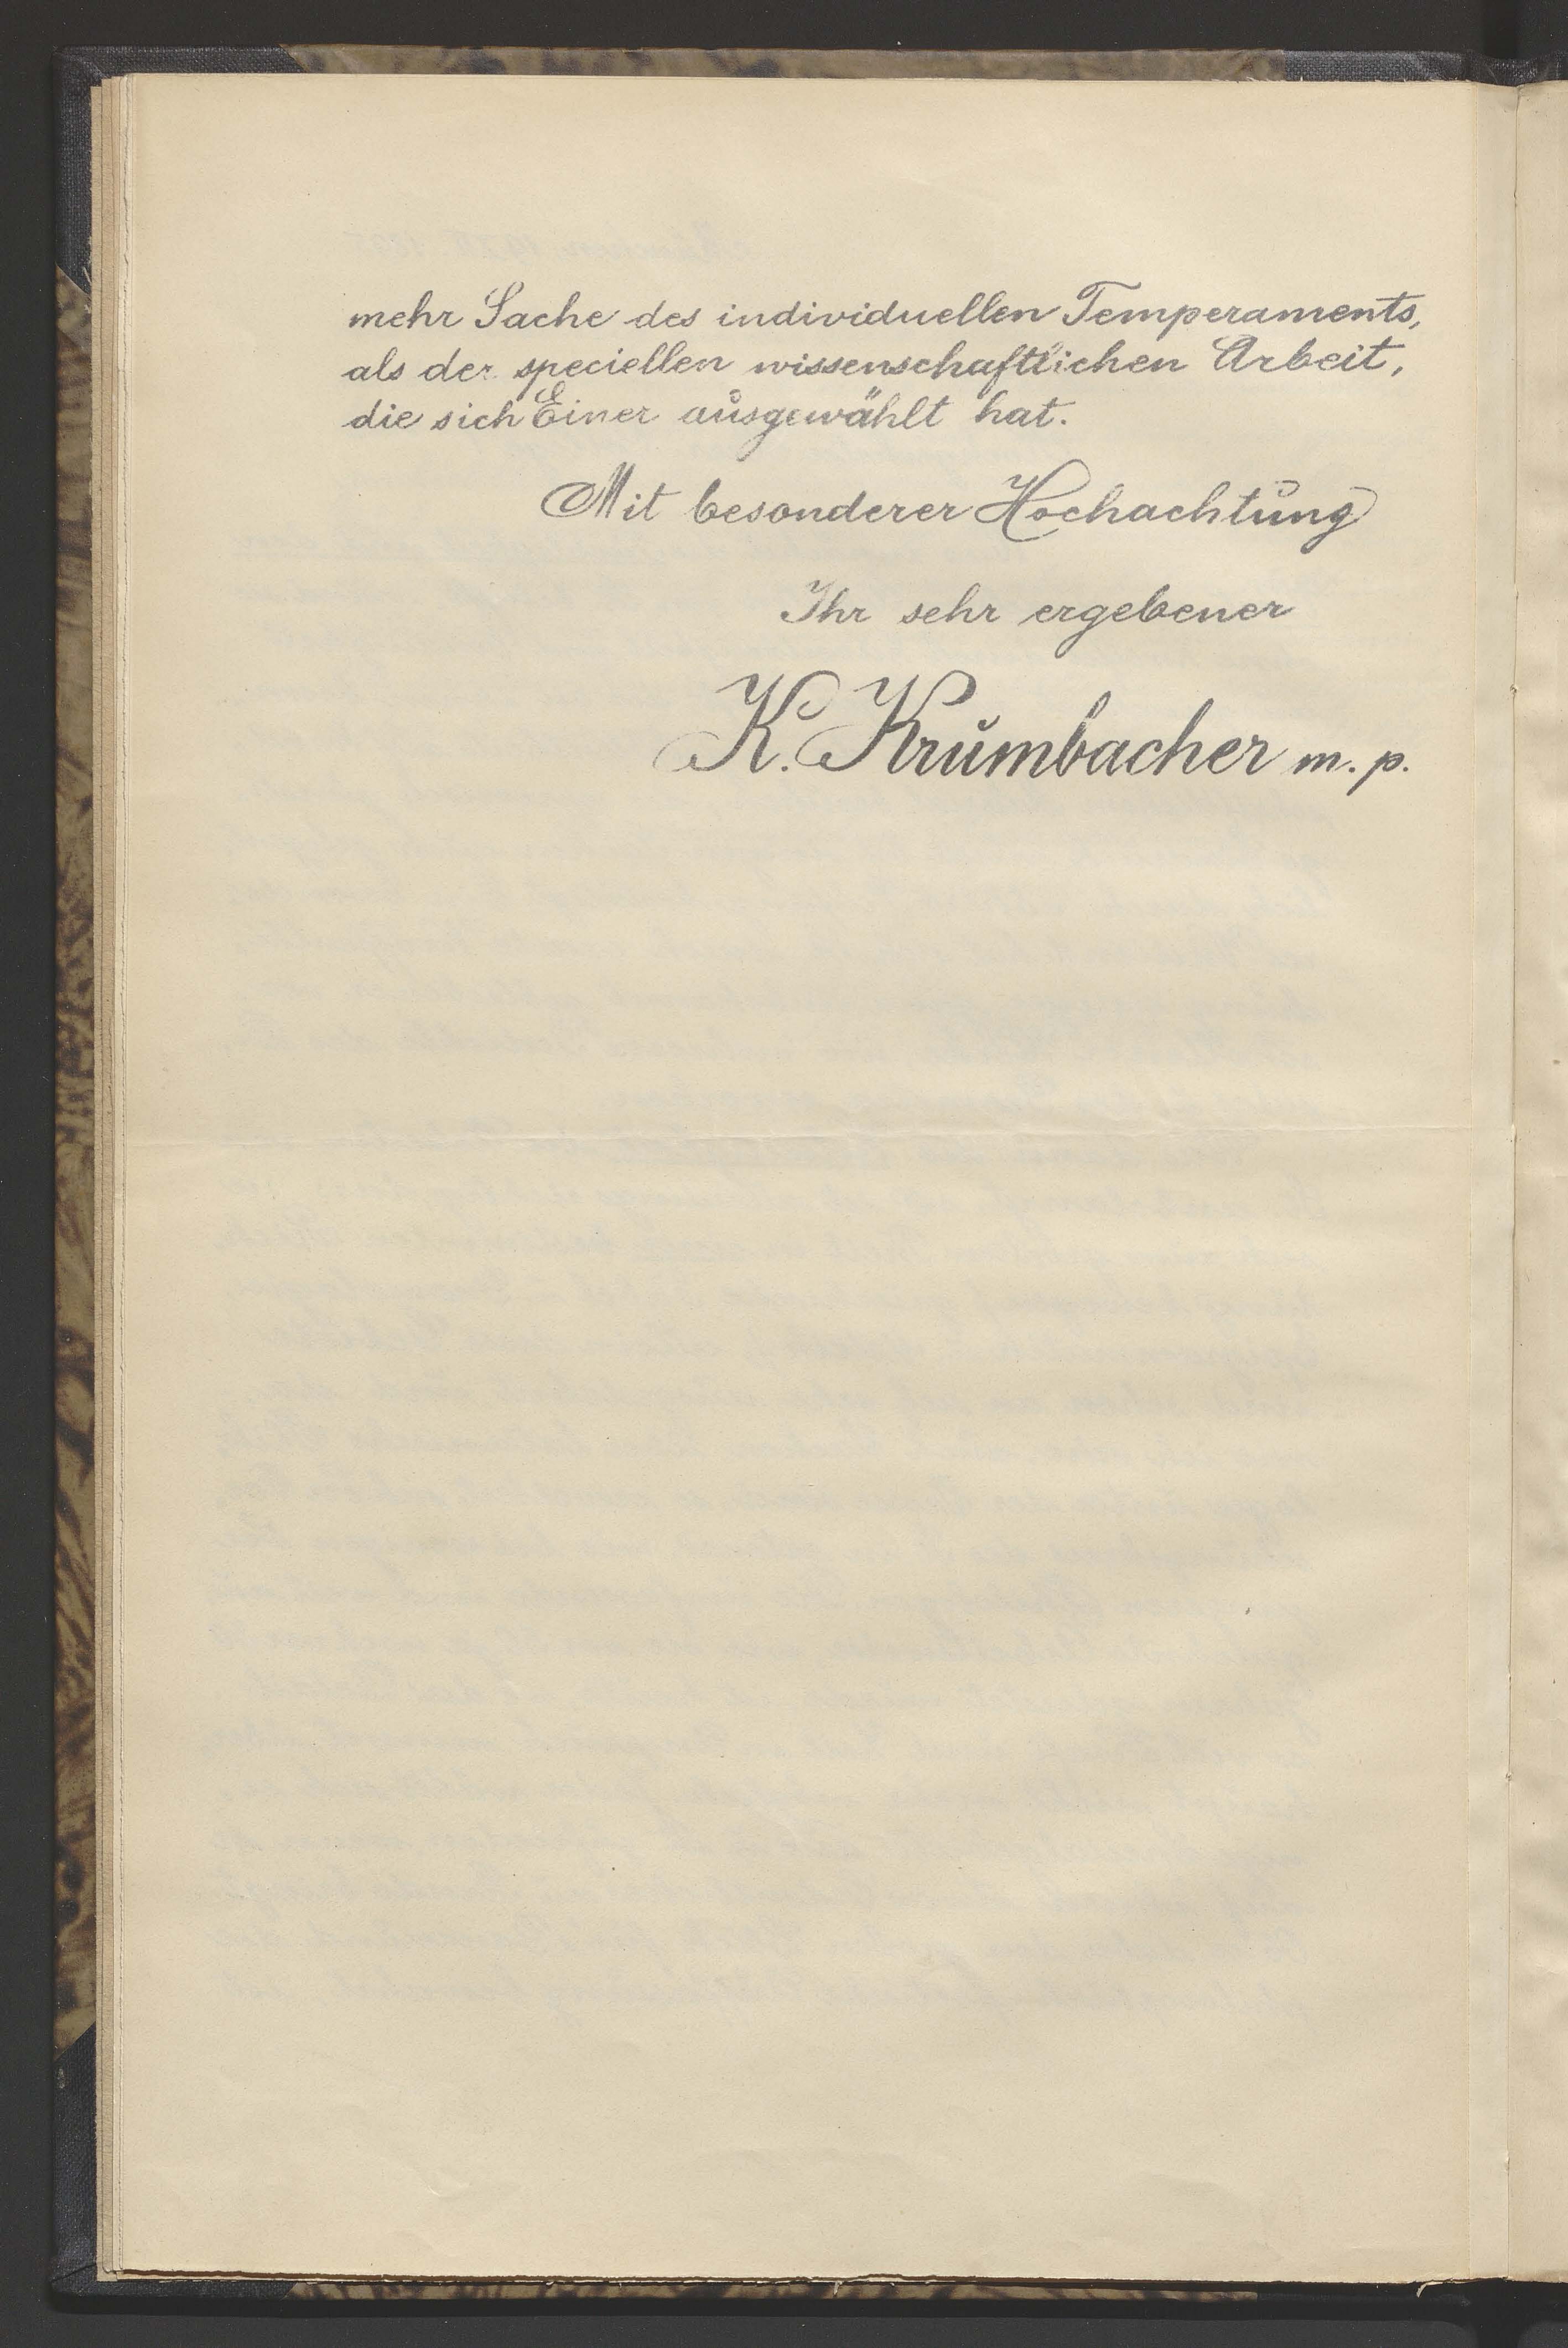 mehr Sache des individuellen Temperaments,
als der speciellen wissenschaftlichen Arbeit,
die sich Einer ausgewählt hat.
Mit besonderer Hochachtung
Ihr sehr ergebener
K. Krumbacher m. p.